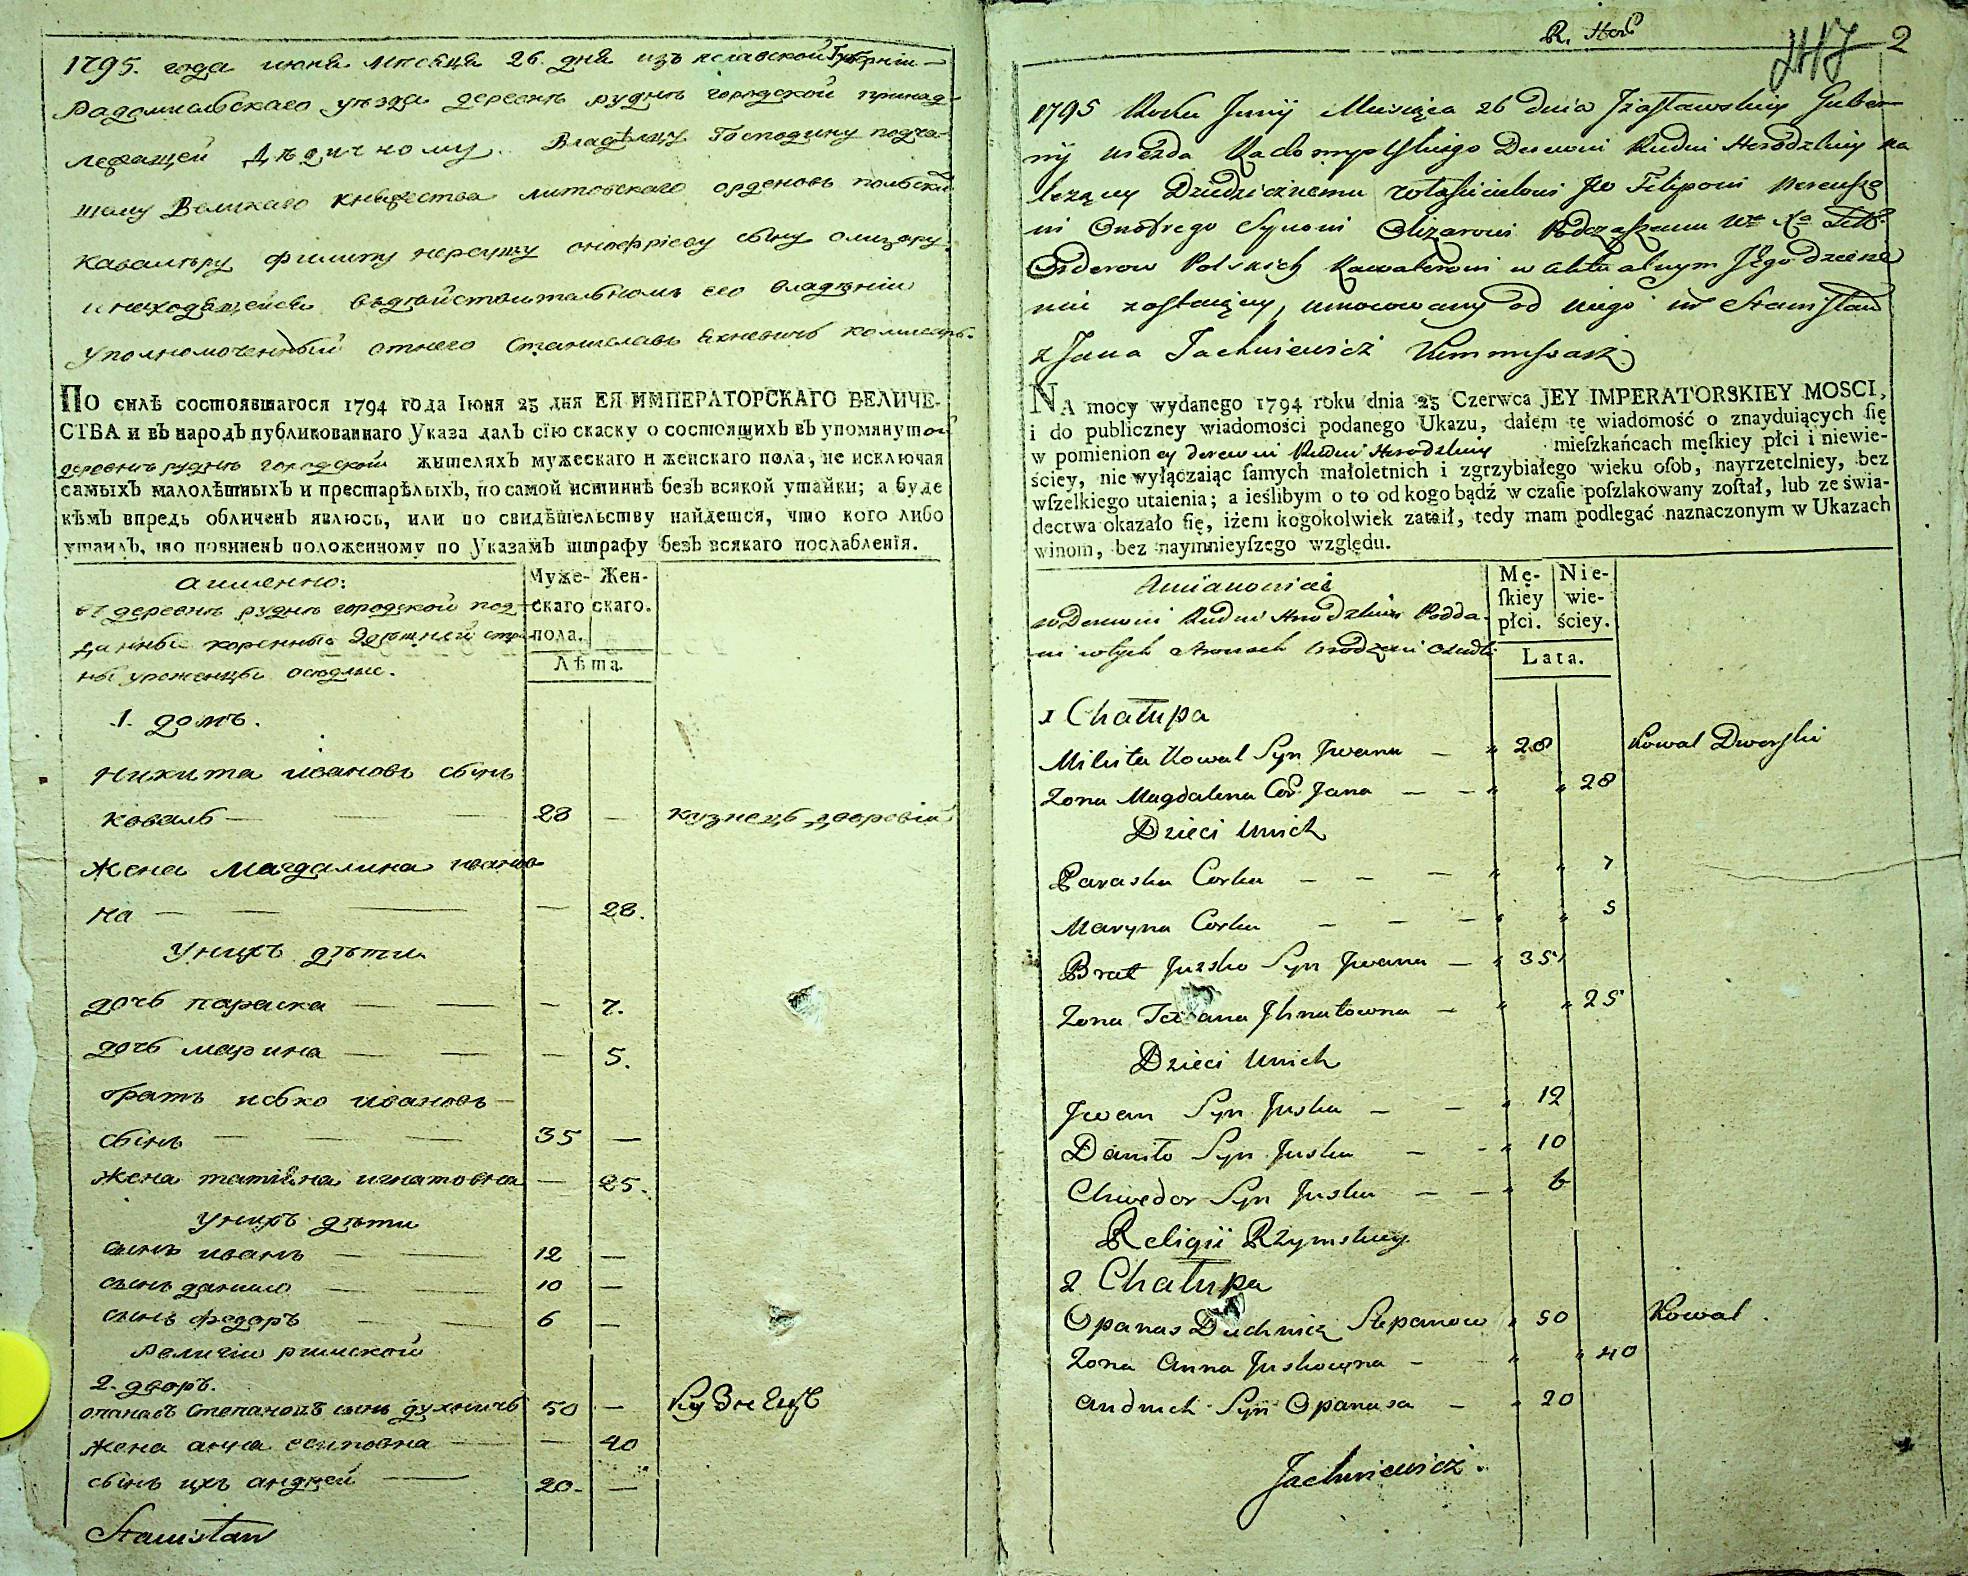 1795. года июня месяца 26. дня изъ иславской Губерніи
Радомысльскаго уѣзда деревнѣ руднѣ городской принад-
лежащей Дѣдичному Владѣлцу Господину подча-
шему Великаго княжества литовскаго орденовъ польских
Кавалѣру филипу нереушу онофріеву сыну олизару
и находящейся въдѣйствительномъ его владѣніи
Уполномоченный отнего Станиславъ Яхневичъ коммисаръ.
ПО силѣ состоявшагося 1794 года Іюня 23 дня ЕЯ ИМПЕРАТОРСКАГО ВЕЛИЧЕ-
СТВА и въ народъ публикованнаго Указа далъ сїю скаску о состоящихъ въ упомянутой
деревнѣ руднѣ городской жителяхъ мужескаго и женскаго пола, не исключая
самыхъ малолѣтныхъ и престарѣлыхъ, по самой истиннѣ безъ всякой утайки; а буде
кѣмъ впредь обличенъ явлюсь, или по свидѣтельству найдется, что кого либо
утаилъ, то повиненъ положенному по Указамъ штрафу безъ всякаго послабленїя.
аименно:
въ деревнѣ руднѣ городской под-
данные коренные здѣшней стра-
ны уроженцы оседлые.
Муже-
скаго
пола.
Жен-
скаго.
Лѣта.
1. домъ.
Никита ивановъ сынъ
коваль — 28 — кузнецъ дворовій
Жена Магдалина иванов-
на — — 28.
Унихъ дѣти
дочь параска — — 7.
дочь марина — — 5.
братъ юско ивановъ
сынъ — 35 —
жена татіяна игнатовна — 25.
Унихъ дѣти
сынъ иванъ — 12 —
сынъ данило — 10 —
сынъ федоръ — 6 —
Религіи римской
2. дворъ.
опанасъ Степановъ сынъ духничъ 50 — Кузнецъ
жена анна осиповна — — 40
сынъ ихъ андрей — 20. —
Stanisław
R. Hor
2
1795 Roku Junij Miesiąca 26 dnia Jzasławskiey Guber-
nij uiezda Radomyslskiego Derewni Rudni Horodzkiey na
leżący Dziedzicznemu własicielowi Jw Filipowi Nereuszo
wi Onofrego Synowi Olizarowi Podczaszemu Wo Xa Litt.
Orderow Polskich Kawalerowi w aktualnym Jego dzierże
niu zostaiący, umocowany od niego ur Stanisław
z Jana Jachniewicz Kommisarz
NA mocy wydanego 1794 roku dnia 23 Czerwca JEY IMPERATORSKIEY MOSCI,
i do publiczney wiadomości podanego Ukazu, dałem tę wiadomość o znayduiących ſię
w pomienioney derewni Rudni Horodzkiey mieſzkańcach męſkiey płci i niewie-
ściey, nie wyłączaiąc ſamych małoletnich i zgrzybiałego wieku oſob, nayrzetelniey, bez
wſzelkiego utaienia; a ieślibym o to od kogo bądź w czaſie poſzlakowany zoſtał, lub ze świa-
dectwa okazało ſię, iżem kogokolwiek zataił, tedy mam podlegać naznaczonym w Ukazach
winom, bez naymnieyſzego względu.
Amianowicie
w Derewni Rudni Horodzkiey Podda-
ni wtych stronach urodzeni osiedli
Mę-
ſkiey
płci.
Nie-
wie-
ściey.
Lata.
1 Chałupa
Mikita Kowal Syn Jwana — 28 Kowal Dworski
Zona Magdalena Cor. Jana — — 28
Dzieci unich
Paraska Corka — — — 7
Maryna Corka — — — 5
Brat Jusko Syn Jwana — 35
Zona Tatiana Jhnatowna — 25
Dzieci unich
Jwan Syn Juska — — 12
Daniło Syn Juska — — 10
Chwedor Syn Juska — — 6
Religii Rzymskiey
2 Chałupa
Opanas Duchnicz Stepanow 50 Kowal.
Zona Anna Juskowna — 40
Andruch Syn Opanasa — 20
Jachniewicz.